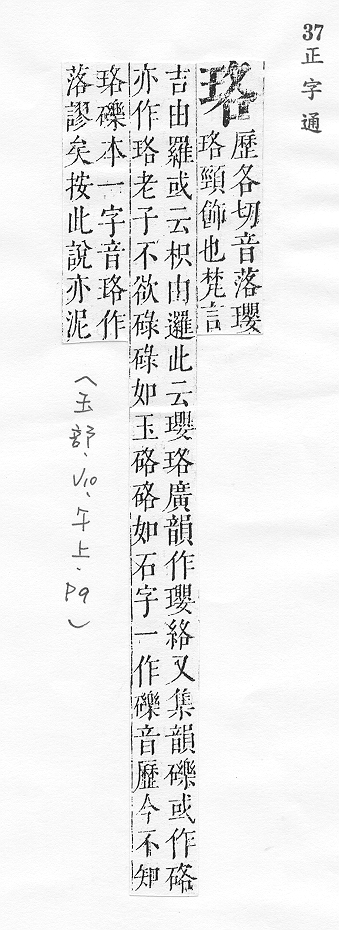 37正字通
珞
歷各切音落瓔
珞頸飾也梵言
吉由羅或云枳由邏此云瓔珞廣韻作瓔絡又集韻礫或作硌
亦作珞老子不欲碌碌如玉硌硌如石字一作礫音歷今不知
珞礫本一字音珞作
落謬矣按此說亦泥
(玉部、V10、午上、P9)